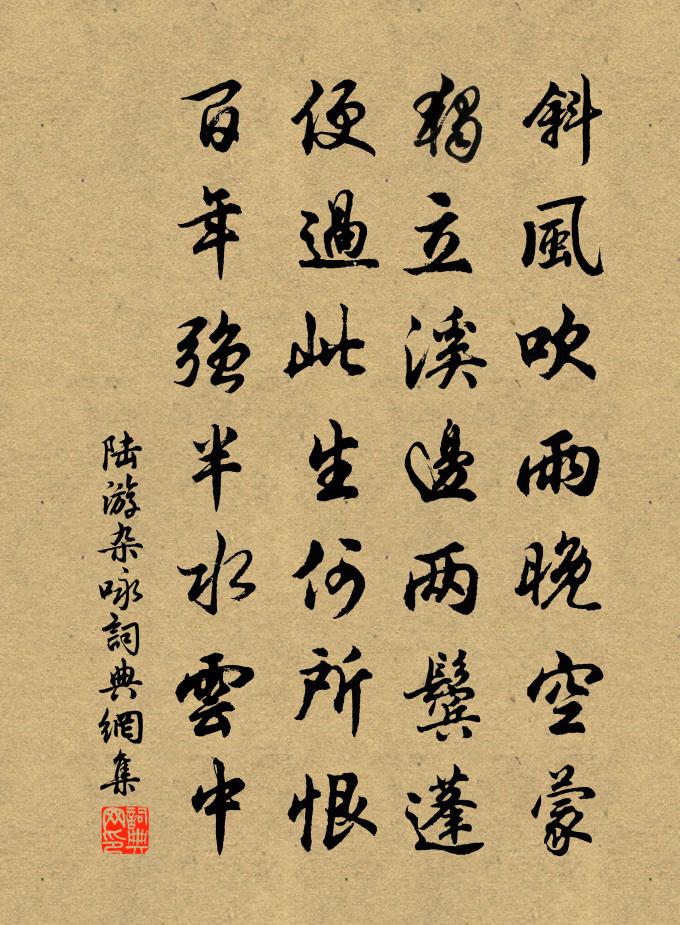 斜風吹雨晚空蒙
獨立溪邊两鬢蓬
便過此生何所恨
百年強半水雲中
陆游杂咏詞典網集
詞典网印